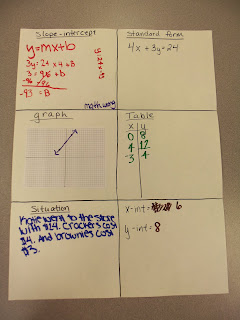 Slope-intercept
y=mx+b
3y = 24 x 4 + B
3 = 96 + B
-93 = B
math wrong
Standard form
4x + 3y = 24
graph
Table
x y
0 8
4 12
-3 4
Situation
Katie went to the store
with $24. Crackers cost
$4. And brownies cost
$3.
x-int = 6
y-int = 8